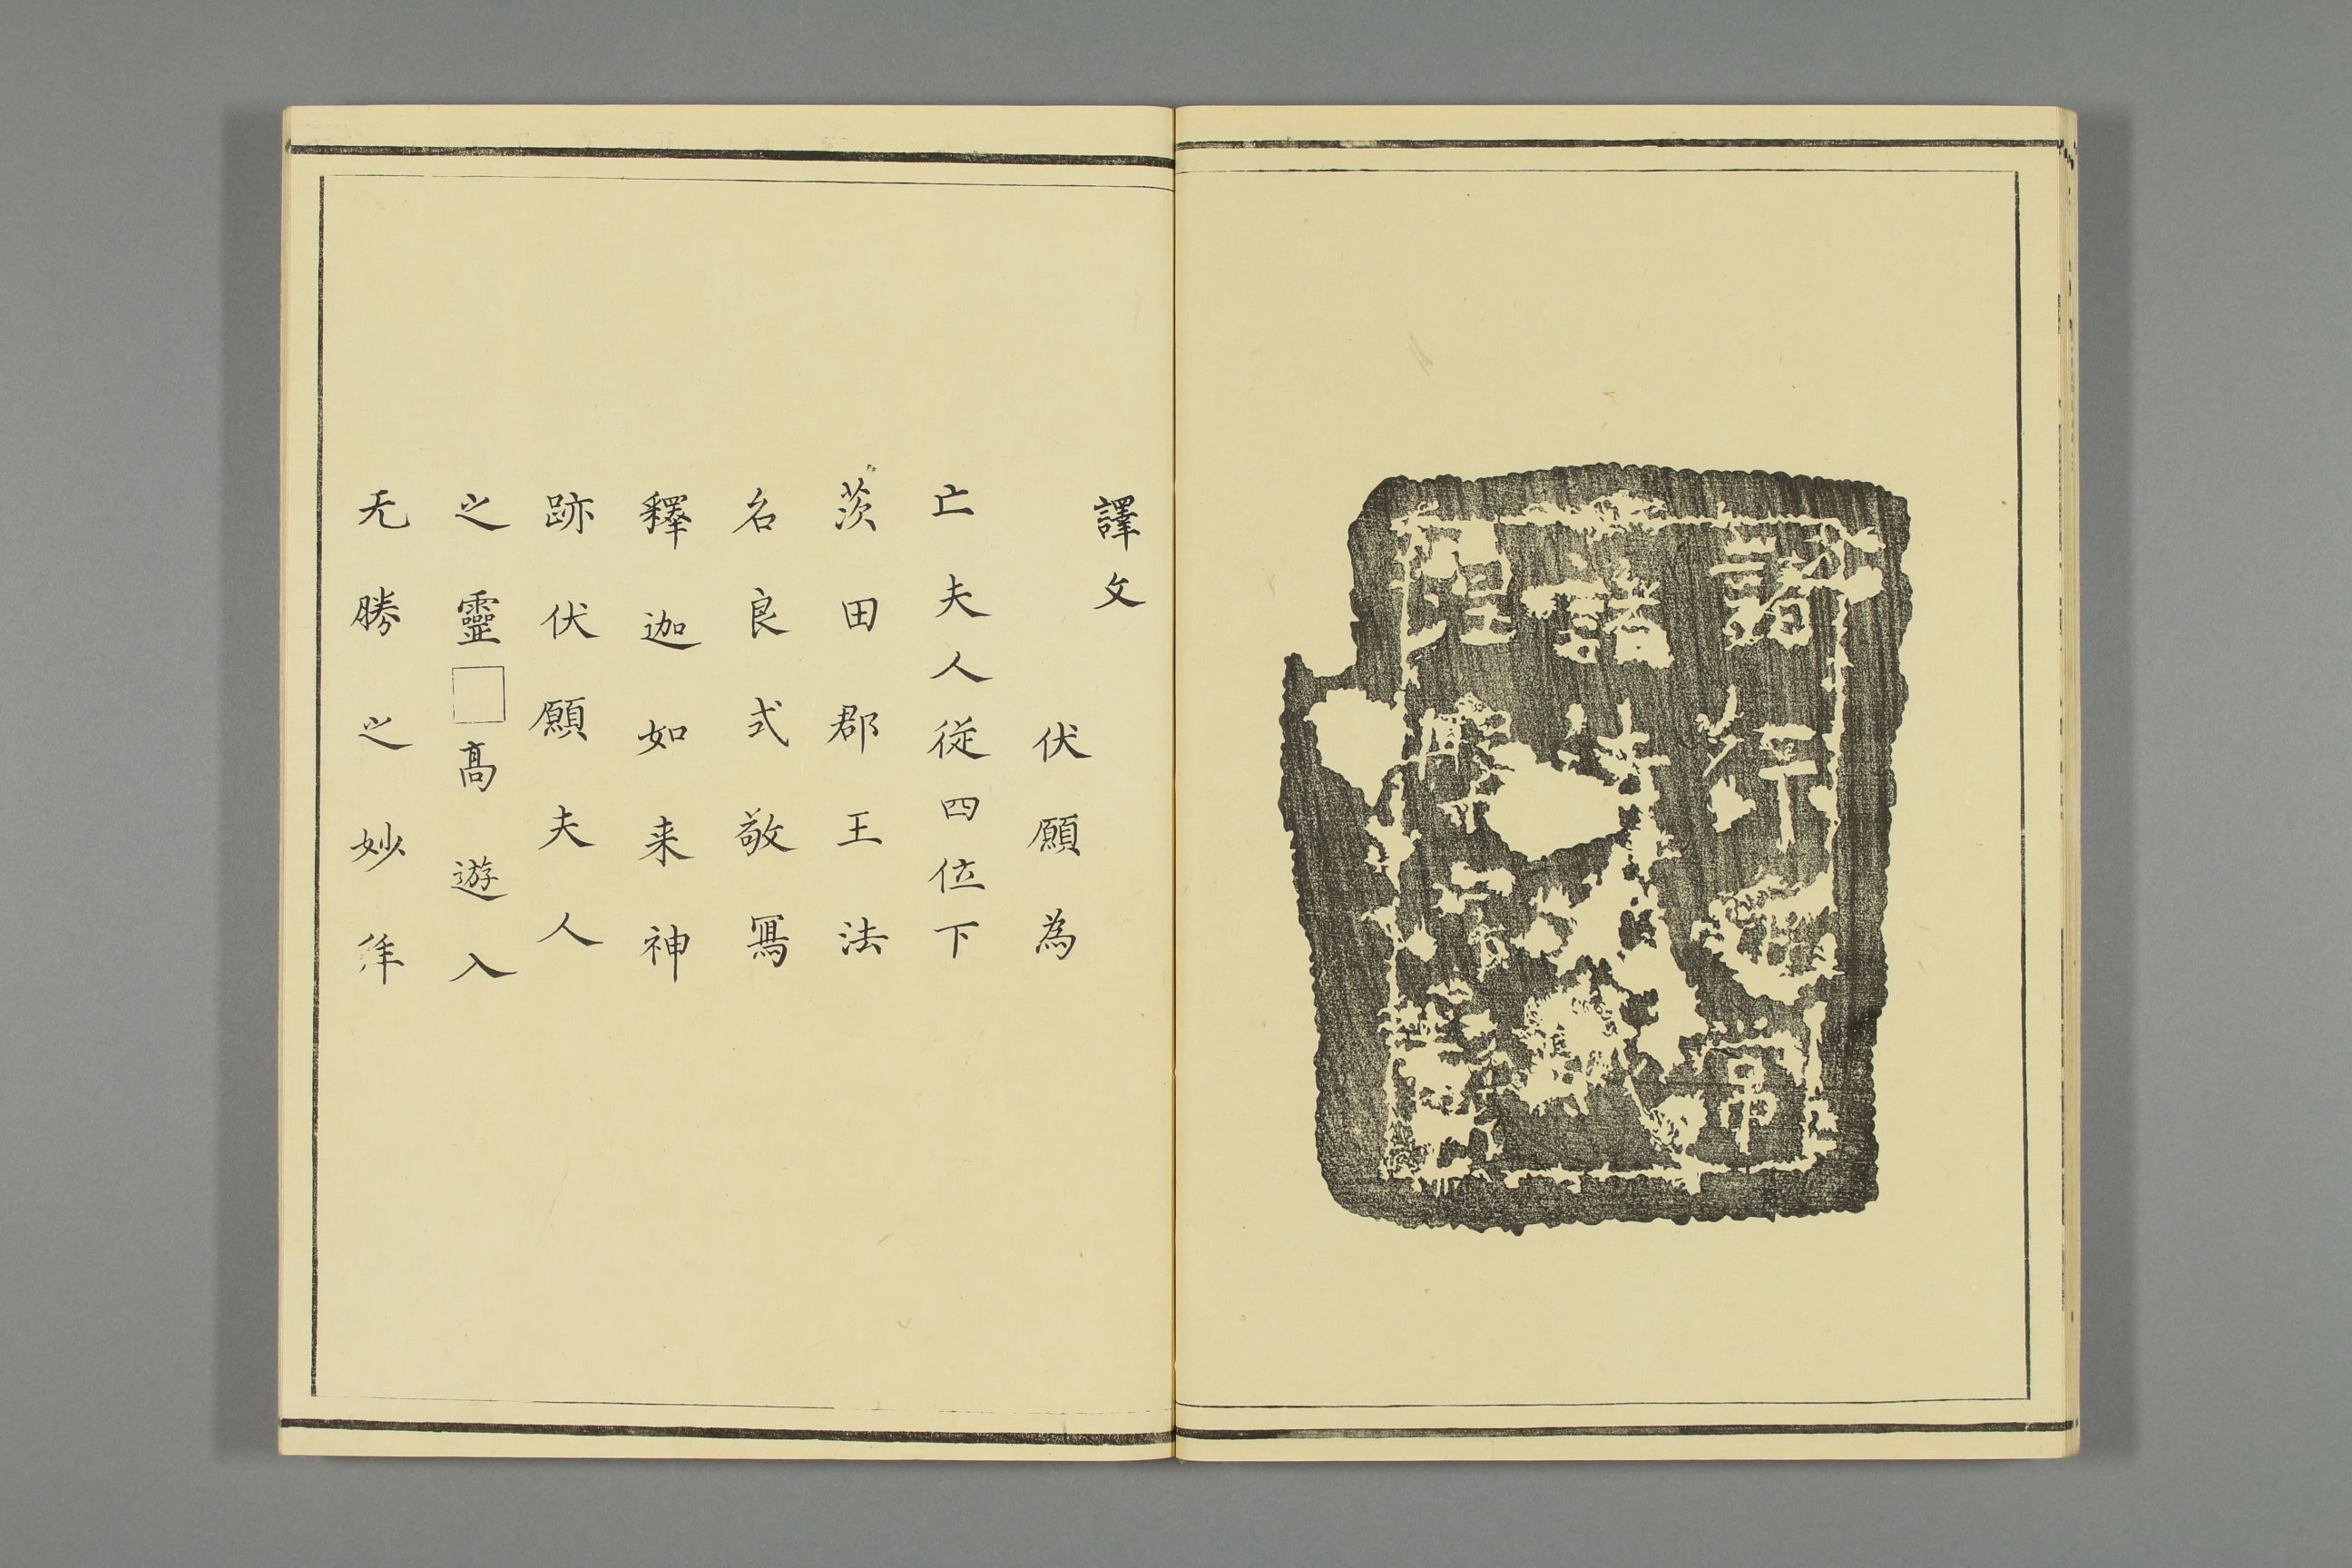 諸行常
諸
涅槃
譯文
伏願為
亡夫人従四位下
茨田郡王法
名良式敬冩
釋迦如来神
跡伏願夫人
之靈□髙遊入
无勝之妙